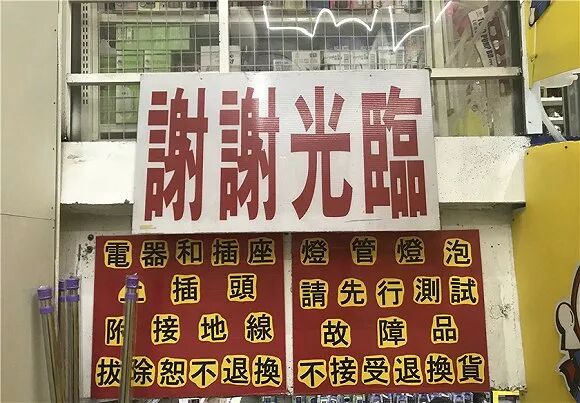 謝謝光臨
電器和插座
插頭
附接地線
拔除恕不退換
燈管燈泡
請先行測試
故障品
不接受退換貨